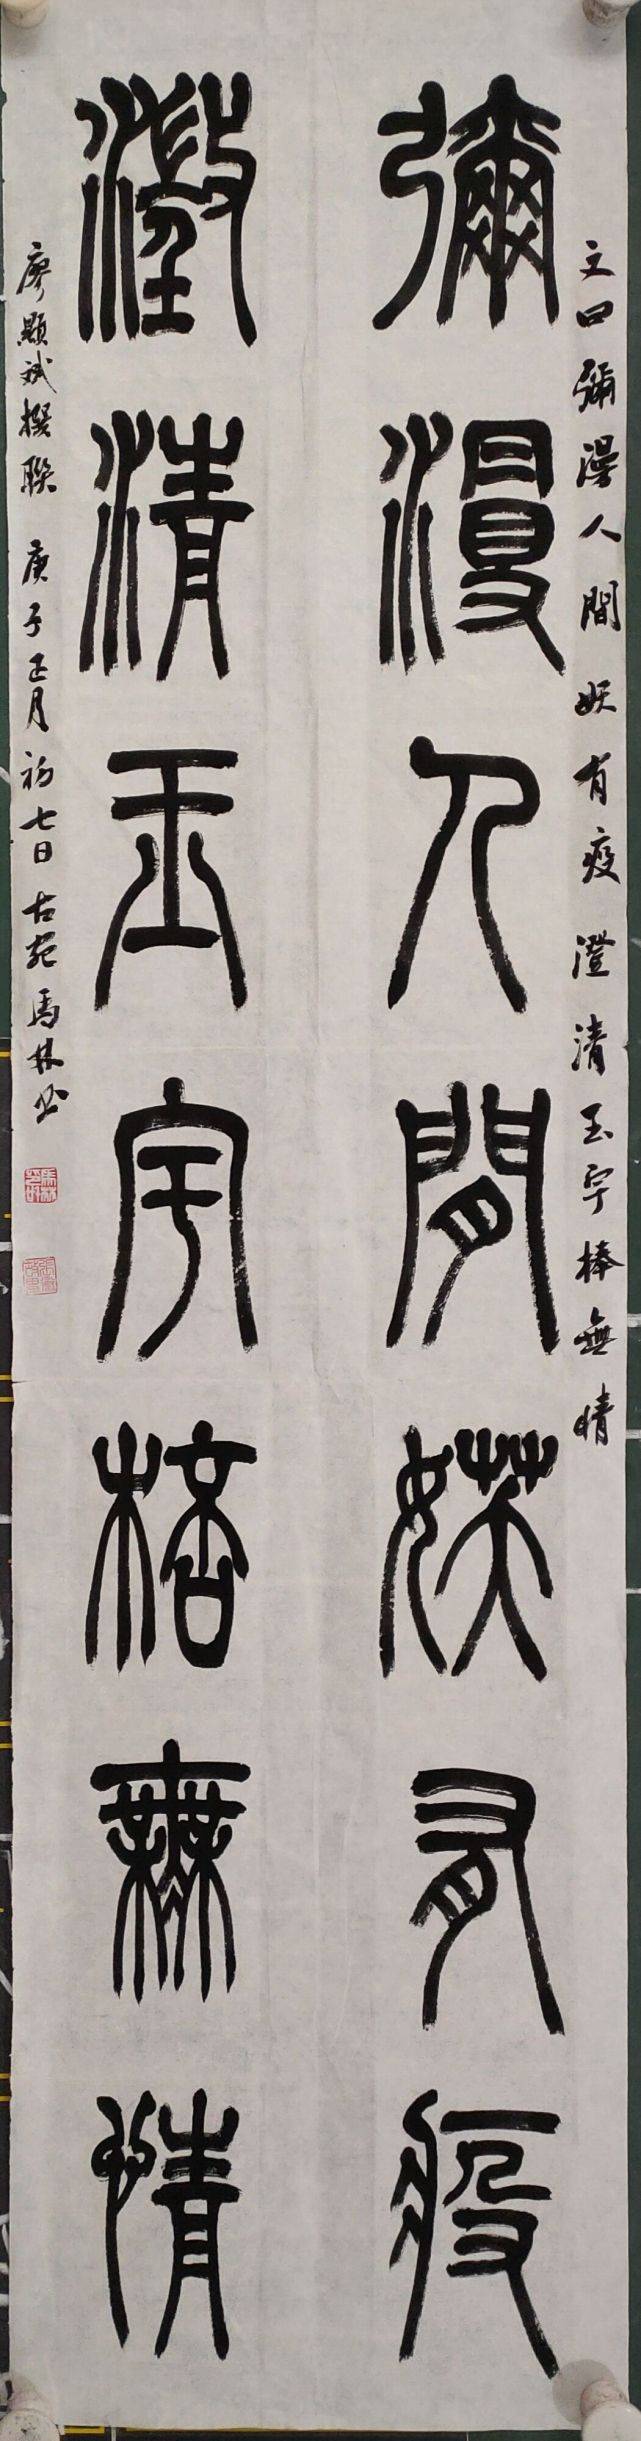 文曰彌漫人間妖有疫澄清玉宇棒無情
彌漫人間妖有疫
澂清玉宇棓無情
廖顯斌撰聯 庚子正月初七日古苑馬林書